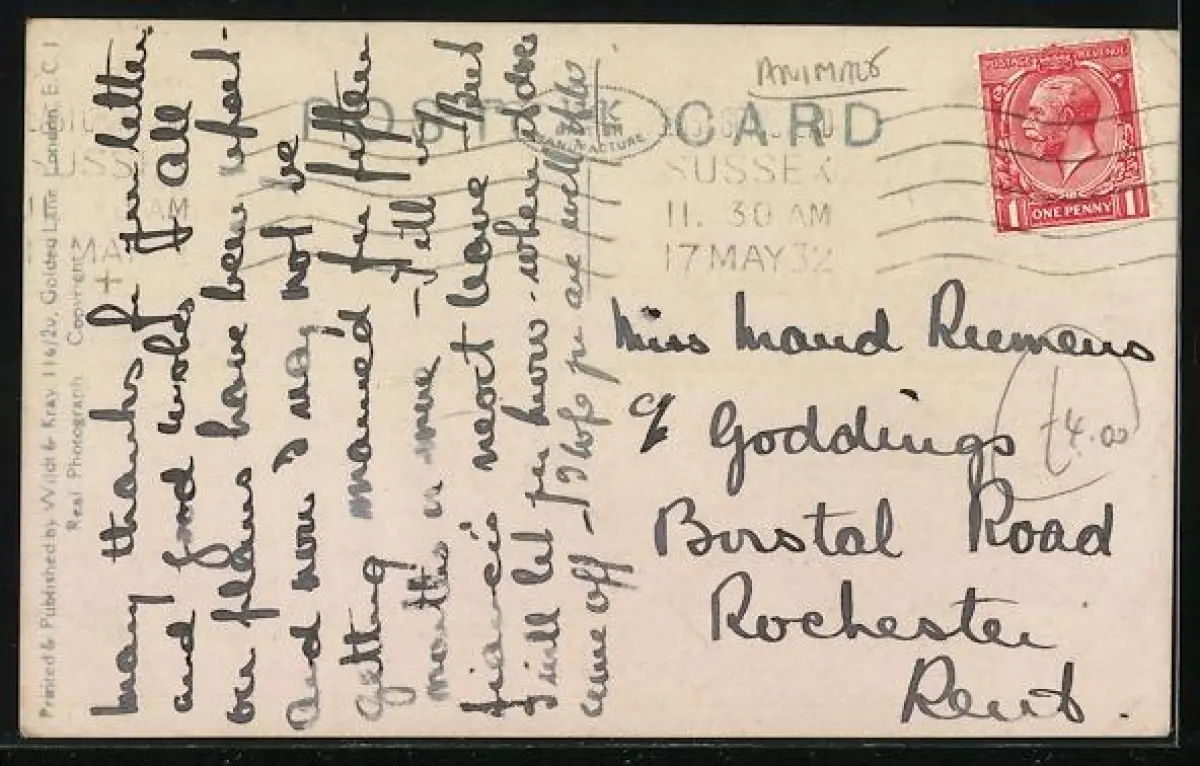 ANIMALS
POST CARD
BRITISH MANUFACTURE
SUSSEX
11. 30 AM
17 MAY 32
POSTAGE REVENUE
1 ONE PENNY 1
Printed & Published by Wildt & Kray 116/20, Golden Lane London, E.C.1
Real Photograph Copyright
Many thanks for your letter
and good wishes & All
our plans have been upset-
And now I may not be
getting married for fifteen
months or more - till my
fiancé's next leave - But
I will let you know - when it does
come off - I hope you are well
Miss Maud Riemens
c/o Goddings
Borstal Road
Rochester
Kent.
£4.00